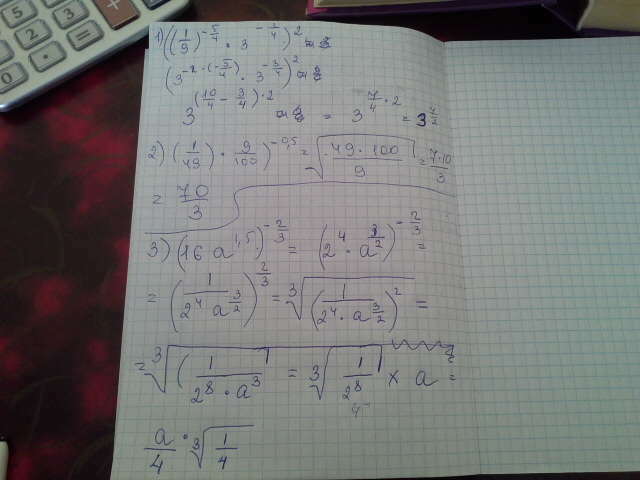 1) ((1/9)^(-5/4) · 3^(-3/4))^2
(3^(-2·(-5/4)) · 3^(-3/4))^2
3^((10/4 - 3/4)·2) = 3^(7/4·2) = 3^(7/2)
2) (1/49 · 9/100)^(-0,5) = √(49·100/9) = 7·10/3
= 70/3
3) (16 a^(1,5))^(-2/3) = (2^4 · a^(3/2))^(-2/3) =
= (1/(2^4 a^(3/2)))^(2/3) = ∛((1/(2^4 · a^(3/2)))^2) =
= ∛(1/(2^8 · a^3)) = ∛(1/2^8) × a =
a/4 · ∛(1/4)